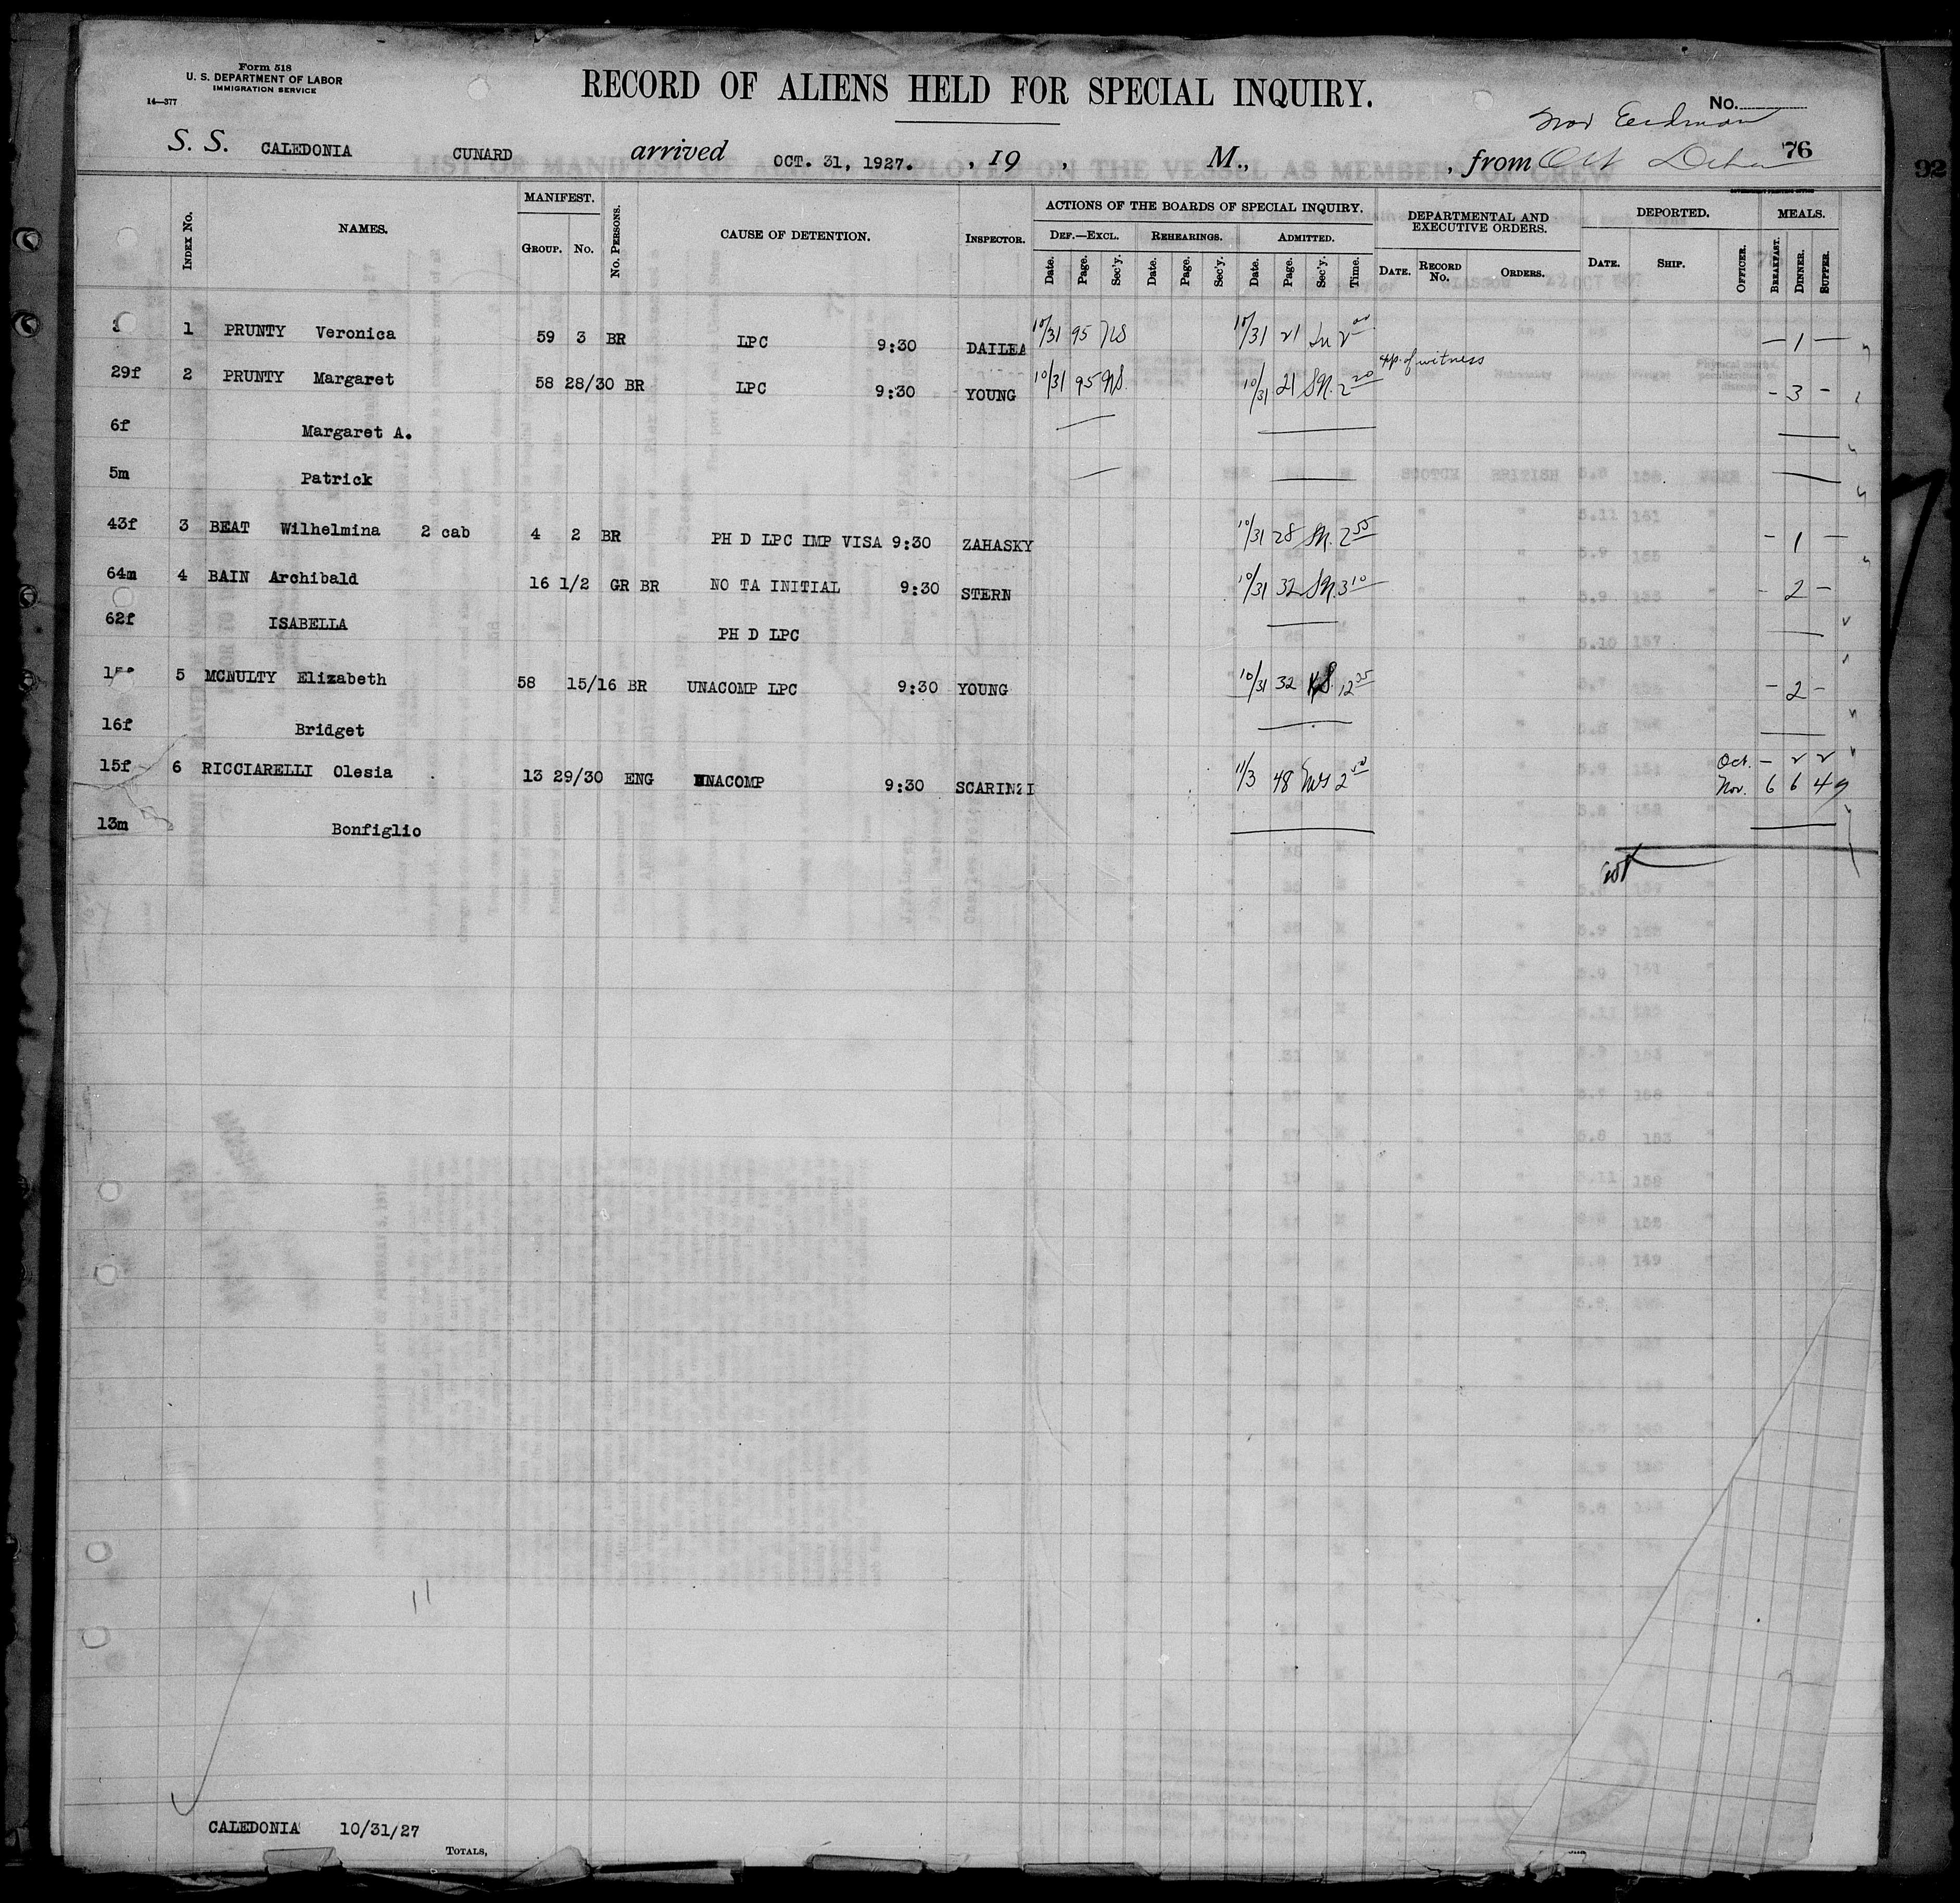 Form 518
U. S. DEPARTMENT OF LABOR
IMMIGRATION SERVICE
14—377
RECORD OF ALIENS HELD FOR SPECIAL INQUIRY.
No.
S. S. CALEDONIA CUNARD arrived OCT. 31, 1927. , 19 , M., , from 76
92
Index No. NAMES. MANIFEST. Group. No. No. Persons. CAUSE OF DETENTION. Inspector. ACTIONS OF THE BOARDS OF SPECIAL INQUIRY. Def.—Excl. Date. Page. Sec'y. Rehearings. Date. Page. Sec'y. Admitted. Date. Page. Sec'y. Time. DEPARTMENTAL AND EXECUTIVE ORDERS. Date. Record No. Orders. DEPORTED. Date. Ship. Officer. MEALS. Breakfast. Dinner. Supper.
1 PRUNTY Veronica 59 3 BR LPC 9:30 DAILEA 10/31 95 10/31 21 2 00 — 1 —
app. of witness
29f 2 PRUNTY Margaret 58 28/30 BR LPC 9:30 YOUNG 10/31 95 10/31 21 2 20 - 3 -
6f Margaret A.
5m Patrick
43f 3 BEAT Wilhelmina 2 cab 4 2 BR PH D LPC IMP VISA 9:30 ZAHASKY 10/31 28 2 55 - 1 —
64m 4 BAIN Archibald 16 1/2 GR BR NO TA INITIAL 9:30 STERN 10/31 32 3 10 - 2 -
62f ISABELLA PH D LPC
5 MCNULTY Elizabeth 58 15/16 BR UNACOMP LPC 9:30 YOUNG 10/31 32 12 25 - 2 -
16f Bridget
15f 6 RICCIARELLI Olesia 13 29/30 ENG UNACOMP 9:30 SCARINZI 11/3 48 2 50 Oct. — 2 2
Nov. 6 6 4
13m Bonfiglio
11
CALEDONIA 10/31/27
Totals,